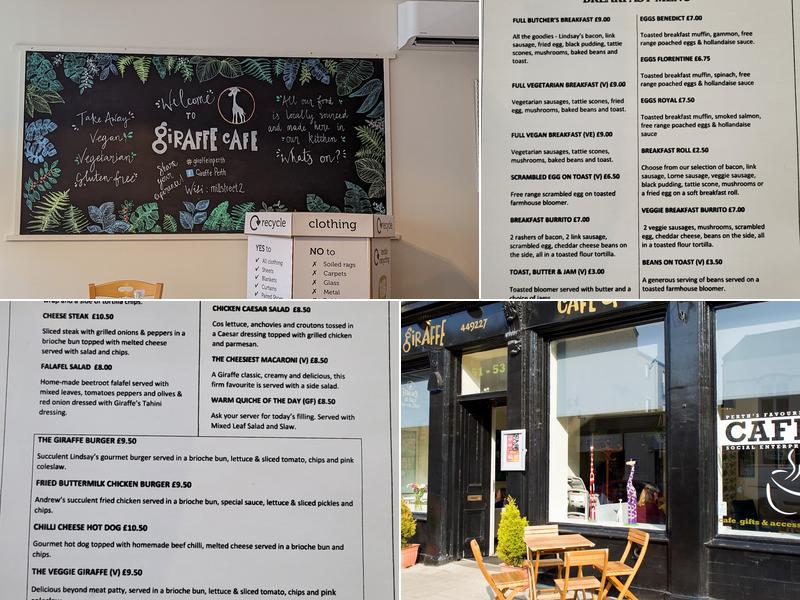 Take Away
Vegan
Vegetarian
Gluten-free
Welcome
TO
GiRAFFE CAFE
Share your experience!
@giraffeinperth
Giraffe Perth
Wifi: millstreet2
All our food
is locally sourced
and made here in
our kitchen
What's on?
recycle
clothing
YES to
✓ All clothing
✓ Sheets
✓ Blankets
✓ Curtains
✓ Paired Shoes
NO to
✗ Soiled rags
✗ Carpets
✗ Glass
✗ Metal
BREAKFAST MENU
FULL BUTCHER'S BREAKFAST £9.00
All the goodies - Lindsay's bacon, link
sausage, fried egg, black pudding, tattie
scones, mushrooms, baked beans and
toast.
FULL VEGETARIAN BREAKFAST (V) £9.00
Vegetarian sausages, tattie scones, fried
egg, mushrooms, baked beans and toast.
FULL VEGAN BREAKFAST (VE) £9.00
Vegetarian sausages, tattie scones,
mushrooms, baked beans and toast.
SCRAMBLED EGG ON TOAST (V) £6.50
Free range scrambled egg on toasted
farmhouse bloomer.
BREAKFAST BURRITO £7.00
2 rashers of bacon, 2 link sausage,
scrambled egg, cheddar cheese beans on
the side, all in a toasted flour tortilla.
TOAST, BUTTER & JAM (V) £3.00
Toasted bloomer served with butter and a
choice of jams
EGGS BENEDICT £7.00
Toasted breakfast muffin, gammon, free
range poached eggs & hollandaise sauce.
EGGS FLORENTINE £6.75
Toasted breakfast muffin, spinach, free
range poached eggs & hollandaise sauce.
EGGS ROYAL £7.50
Toasted breakfast muffin, smoked salmon,
free range poached eggs & hollandaise
sauce
BREAKFAST ROLL £2.50
Choose from our selection of bacon, link
sausage, Lorne sausage, veggie sausage,
black pudding, tattie scone, mushrooms or
a fried egg on a soft breakfast roll.
VEGGIE BREAKFAST BURRITO £7.00
2 veggie sausages, mushrooms, scrambled
egg, cheddar cheese, beans on the side, all
in a toasted flour tortilla.
BEANS ON TOAST (V) £3.50
A generous serving of beans served on a
toasted farmhouse bloomer.
wrap and a side of tortilla chips.
CHEESE STEAK £10.50
Sliced steak with grilled onions & peppers in a
brioche bun topped with melted cheese
served with salad and chips.
FALAFEL SALAD £8.00
Home-made beetroot falafel served with
mixed leaves, tomatoes peppers and olives &
red onion dressed with Giraffe's Tahini
dressing.
CHICKEN CAESAR SALAD £8.50
Cos lettuce, anchovies and croutons tossed in
a Caesar dressing topped with grilled chicken
and parmesan.
THE CHEESIEST MACARONI (V) £8.50
A Giraffe classic, creamy and delicious, this
firm favourite is served with a side salad.
WARM QUICHE OF THE DAY (GF) £8.50
Ask your server for today's filling. Served with
Mixed Leaf Salad and Slaw.
THE GIRAFFE BURGER £9.50
Succulent Lindsay's gourmet burger served in a brioche bun, lettuce & sliced tomato, chips and pink
coleslaw.
FRIED BUTTERMILK CHICKEN BURGER £9.50
Andrew's succulent fried chicken served in a brioche bun, special sauce, lettuce & sliced pickles and
chips.
CHILLI CHEESE HOT DOG £10.50
Gourmet hot dog topped with homemade beef chilli, melted cheese served in a brioche bun and
chips.
THE VEGGIE GIRAFFE (V) £9.50
Delicious beyond meat patty, served in a brioche bun, lettuce & sliced tomato, chips and pink
coleslaw
GiRAFFE
449227
CAFE
51 - 53
PERTH'S FAVOUR
CAFE
SOCIAL ENTERPR
cafe gifts & access